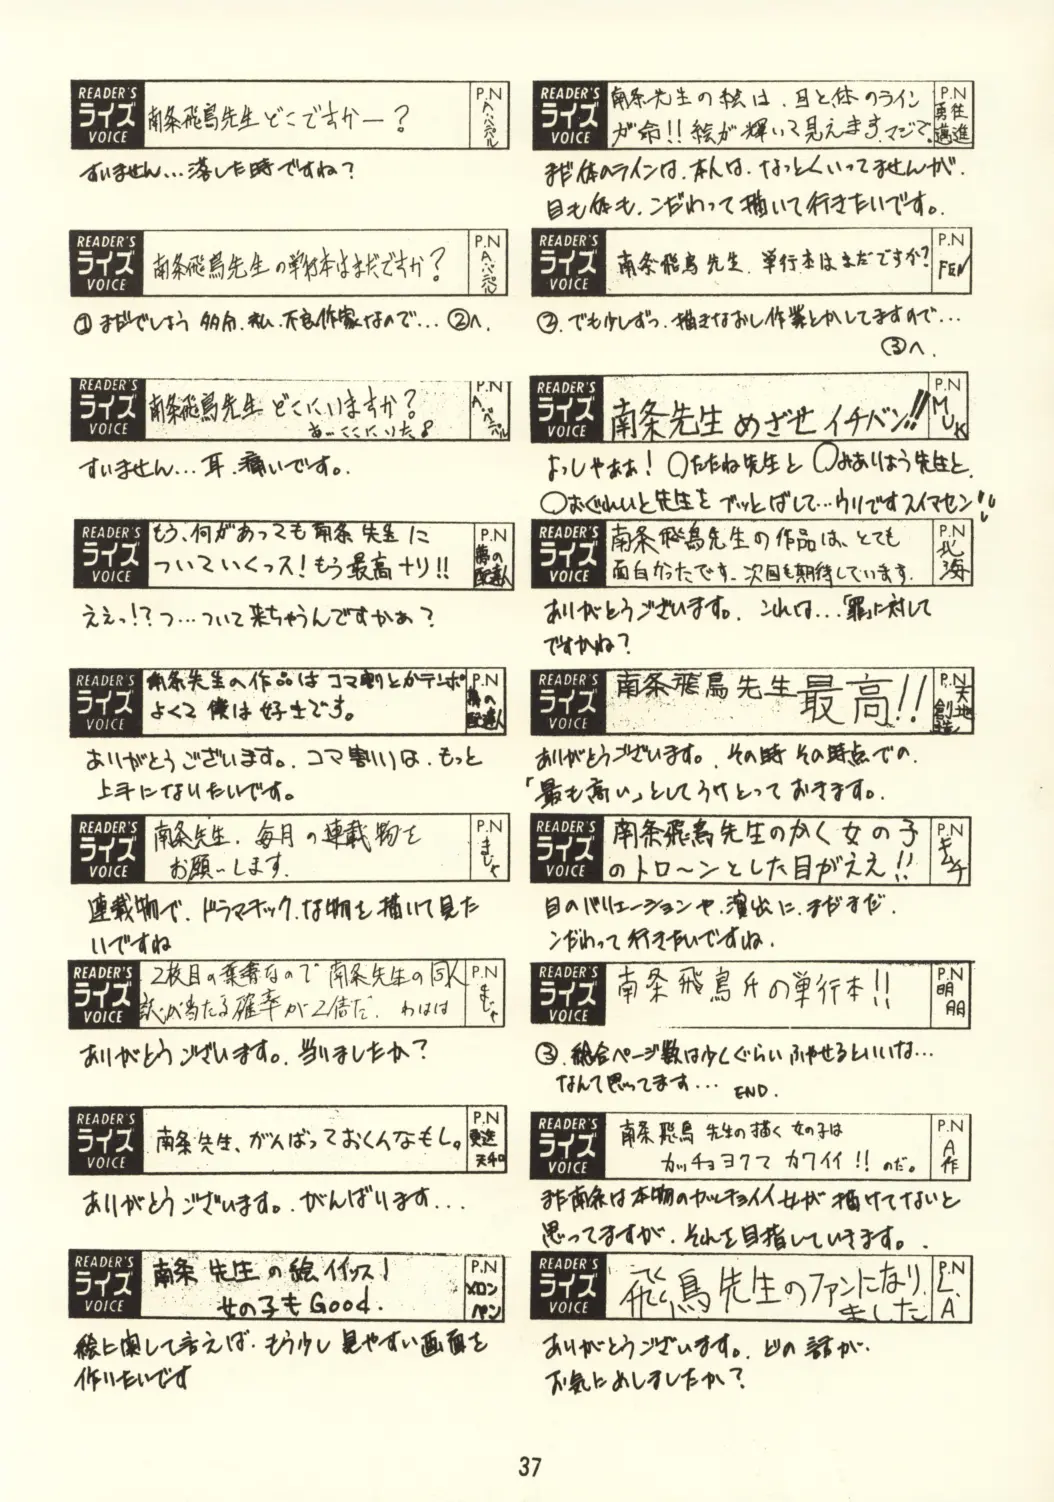 READER'S
ライズ
VOICE
南条飛鳥先生どこですかー?
P.N
すいません…落した時ですね?
READER'S
ライズ
VOICE
南条飛鳥先生の単行本はまだですか?
P.N
①まだでしょう 多分、私、不良作家なので…②へ.
READER'S
ライズ
VOICE
南条飛鳥先生 どこにいますか?
あ…ここにいた
P.N
すいません…耳、痛いです。
READER'S
ライズ
VOICE
もう、何があっても南条先生に
ついていくっス!もう最高ナリ!!
P.N
夢の
配達人
ええっ!?つ…ついて来ちゃうんですかぁ?
READER'S
ライズ
VOICE
南条先生の作品はコマ割とかテンポ
よくて僕は好きです。
P.N
夢の
配達人
ありがとうございます。コマ割りは、もっと
上手になりたいです。
READER'S
ライズ
VOICE
南条先生、毎月の連載物を
お願いします.
P.N
まじゃ
連載物で、ドラマチック、な物を描いて見た
いですね
READER'S
ライズ
VOICE
2枚目の葉書なので南条先生の同人
誌が当たる確率が2倍だ. わはは
P.N
まじゃ
ありがとうございます。当りましたか?
READER'S
ライズ
VOICE
南条先生、がんばっておくんなもし。
P.N
ありがとうございます。がんばります…
READER'S
ライズ
VOICE
南条 先生の絵イイッス!
女の子もGood.
P.N
メロン
ペン
絵に関して言えば、もう少し見やすい画面を
作りたいです
READER'S
ライズ
VOICE
南条先生の絵は、目と体のライン
が命!!絵が輝いて見えます、マジで。
P.N
勇往
邁進
まだ体のラインは、本人は、なっとくいってませんが、
目も体も、こだわって描いて行きたいです。
READER'S
ライズ
VOICE
南条飛鳥先生、単行本はまだですか?
P.N
FEN
②.でも少しずつ、描きなおし作業とかしてますので…
③へ.
READER'S
ライズ
VOICE
南条先生 めざせイチバン!!
P.N
MUK
よっしゃぁぁ!○たたね先生と○みありほう先生と、
○おぐれいと先生をブッとばして…ウソですスイマセン!!
READER'S
ライズ
VOICE
南条飛鳥先生の作品は、とても
面白かったです、次回も期待しています.
P.N
北海
ありがとうございます。これは…「罪」に対して
ですかね?
READER'S
ライズ
VOICE
南条飛鳥先生最高!!
P.N
天地
創造
ありがとうございます。その時その時点での、
「最も高い」としてうけとっておきます。
READER'S
ライズ
VOICE
南条飛鳥先生のかく女の子
のトロ〜ンとした目がええ!!
P.N
キムチ
目のバリエーションや、演出に、まだまだ、
こだわって行きたいですね.
READER'S
ライズ
VOICE
南条飛鳥氏の単行本!!
P.N
明朋
③.総合ページ数は少しぐらいふやせるといいな…
なんて思ってます… END.
READER'S
ライズ
VOICE
南条飛鳥 先生の描く女の子は
カッチョヨクてカワイイ!! のだ。
P.N
A作
まだ南条は本物のカッチョイイ女が描けてないと
思ってますが、それを目指していきます。
READER'S
ライズ
VOICE
飛鳥先生のファンになり
ました
P.N
L.A
ありがとうございます。どの話が、
お気にめしましたか?
37